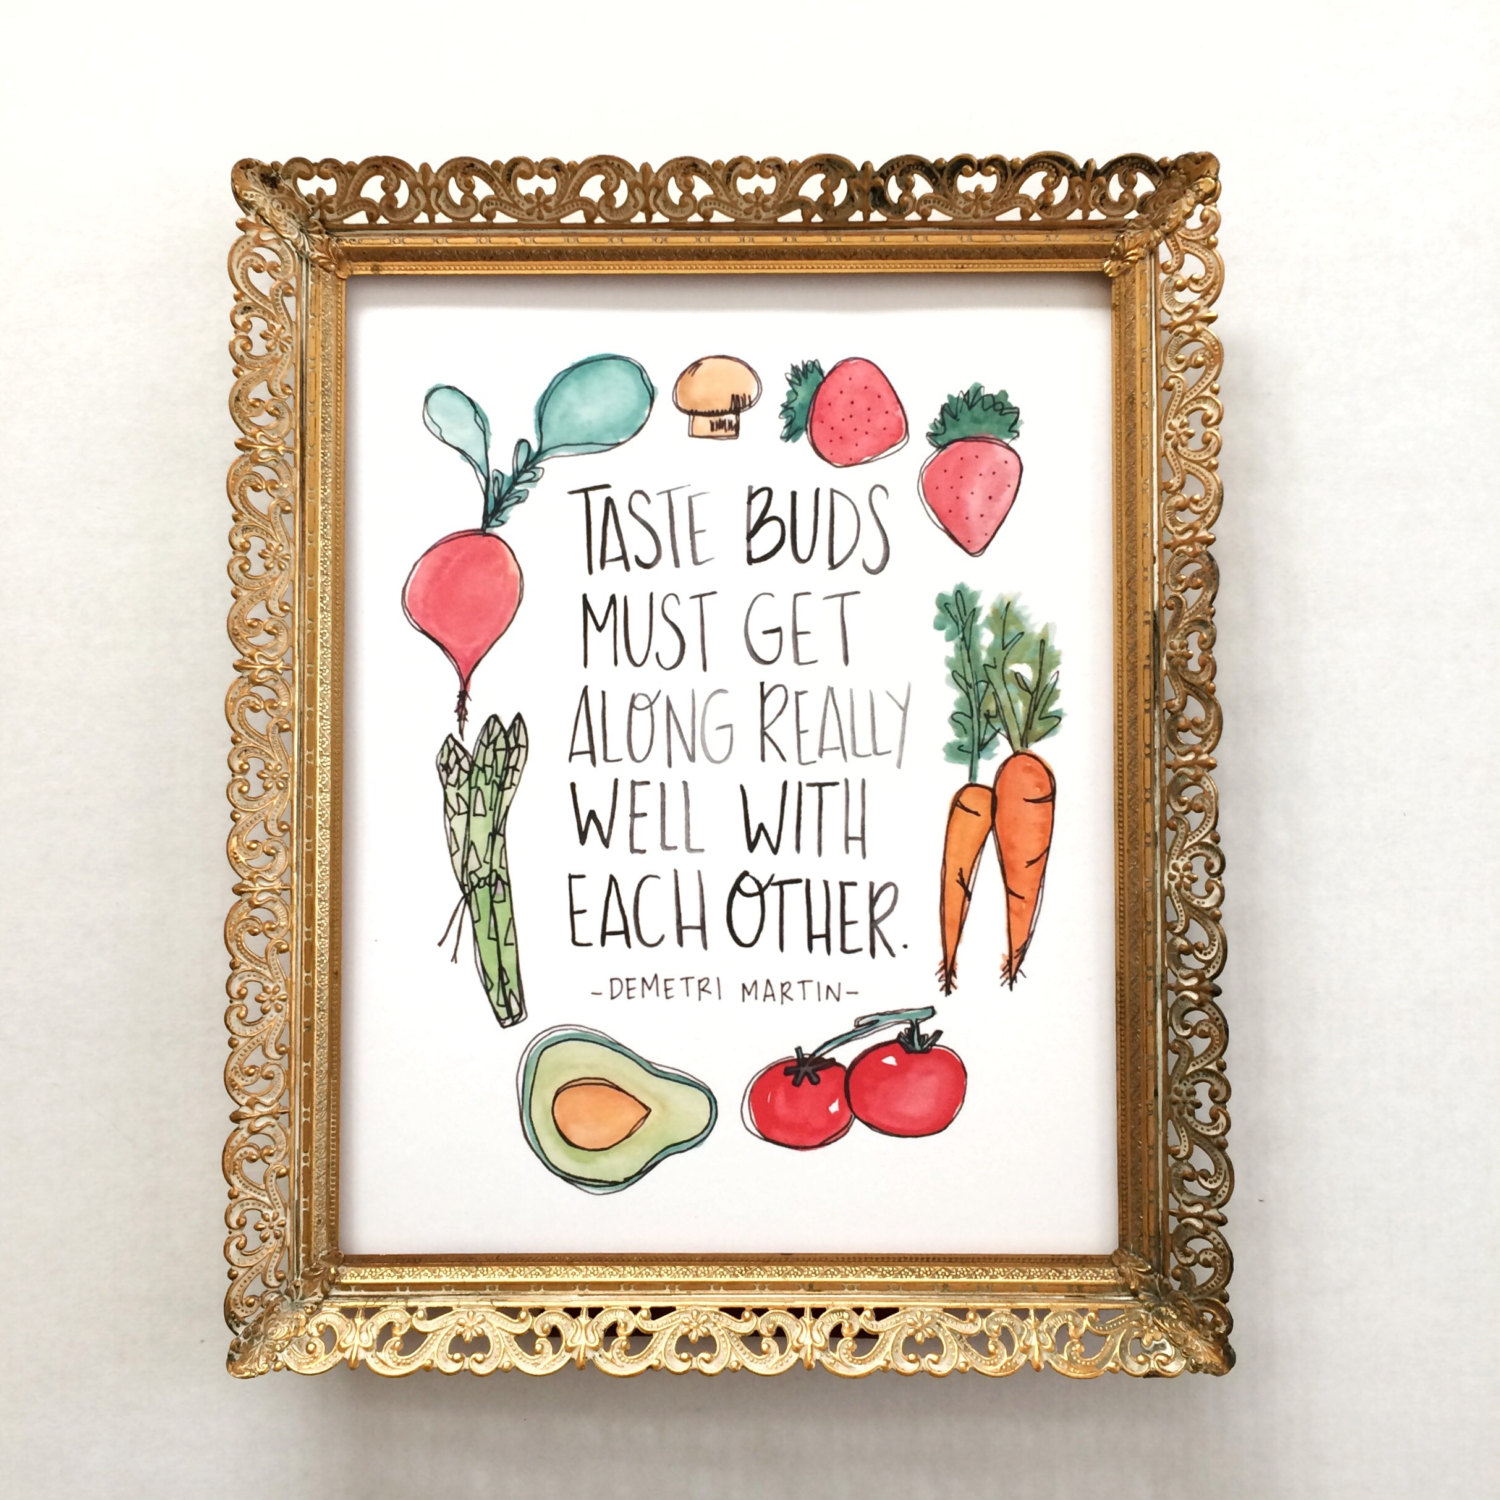 TASTE BUDS
MUST GET
ALONG REALLY
WELL WITH
EACH OTHER.
-DEMETRI MARTIN-